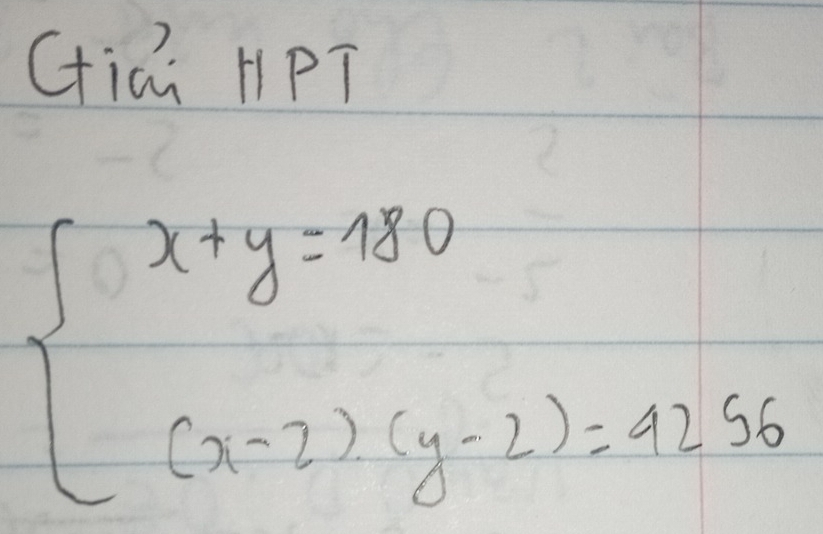 Giải HPT
x+y=180
(x-2).(y-2)=4256